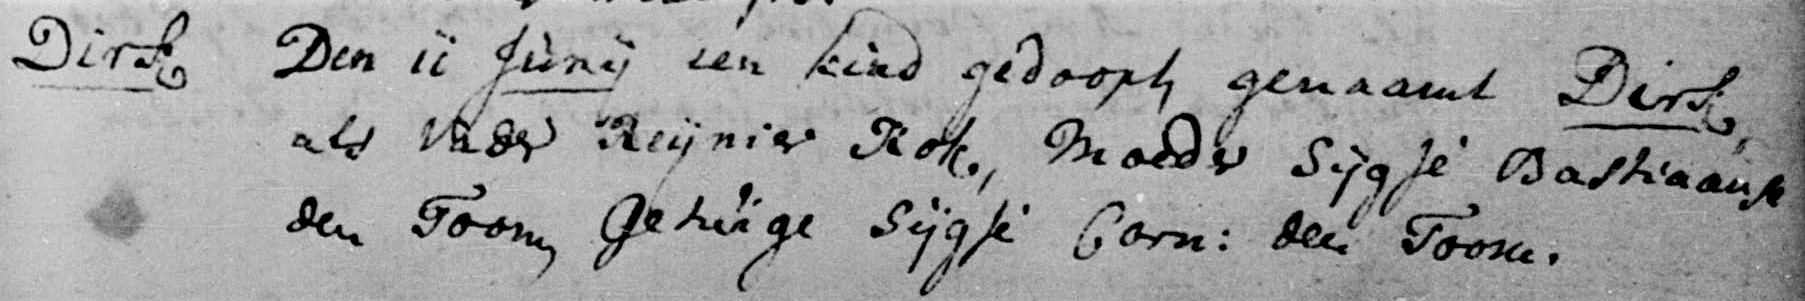 Dirk Den 11 Junÿ een kind gedoopt genaamt Dirk,
als Vader Reÿnier Kok, Moeder Sÿgje Bastiaanse
den Toom, Getuige Sÿgje Corn: den Toom.